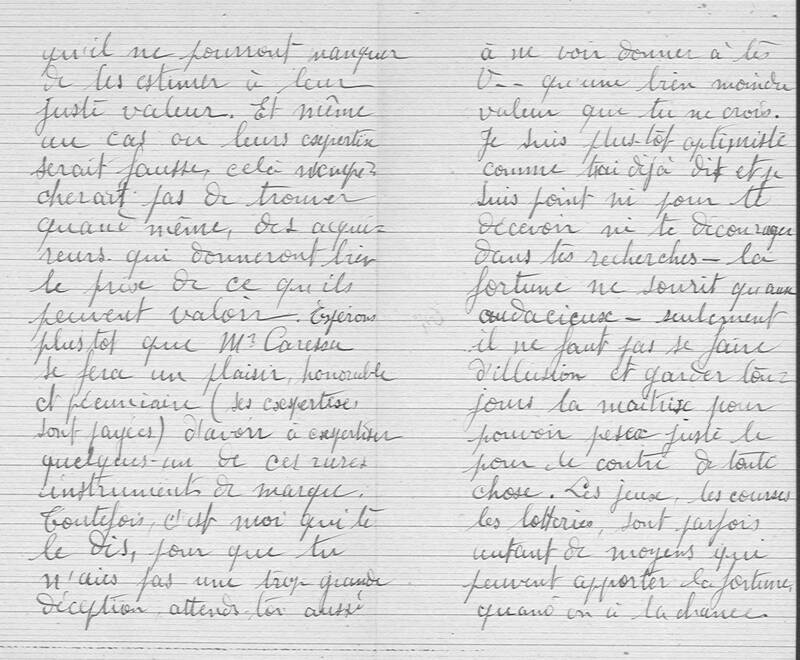 qu'il ne pourront manquer
de les estimer à leur
juste valeur. Et même
au cas ou leurs exepertise
serait fausse, celà n'empê=
cherait pas de trouver
quand même, des acqué=
reurs qui donneront bien
le prix de ce qu'ils
peuvent valoir. Espérons
plus tot que Mr Caressa
se fera un plaisir, honorable
et pécuniaire (ses exsertises
sont payées) d'avoir à expertiser
quelques-un de ces rares
instruments de marque.
Toutefois, c'est moi qui te
le dis, pour que tu
n'aies pas une trop grande
déception, attends-toi aussi
à ne voir donner à tes
V-- qu'une bien moindre
valeur que tu ne crois.
Je suis plus-tôt optimiste
comme t'ai déjà dit et je
suis point ni pour te
décevoir ni te décourager
dans tes recherches – la
fortune ne sourit qu'aux
audacieux – seulement
il ne faut pas se faire
d'illusion et garder tou=
jours la maitrise pour
pouvoir peser juste le
pour le contre de toute
chose. Les jeux, les courses
les lotteries, sont parfois
autant de moyens qui
peuvent apporter la fortune,
quand on à la chance.